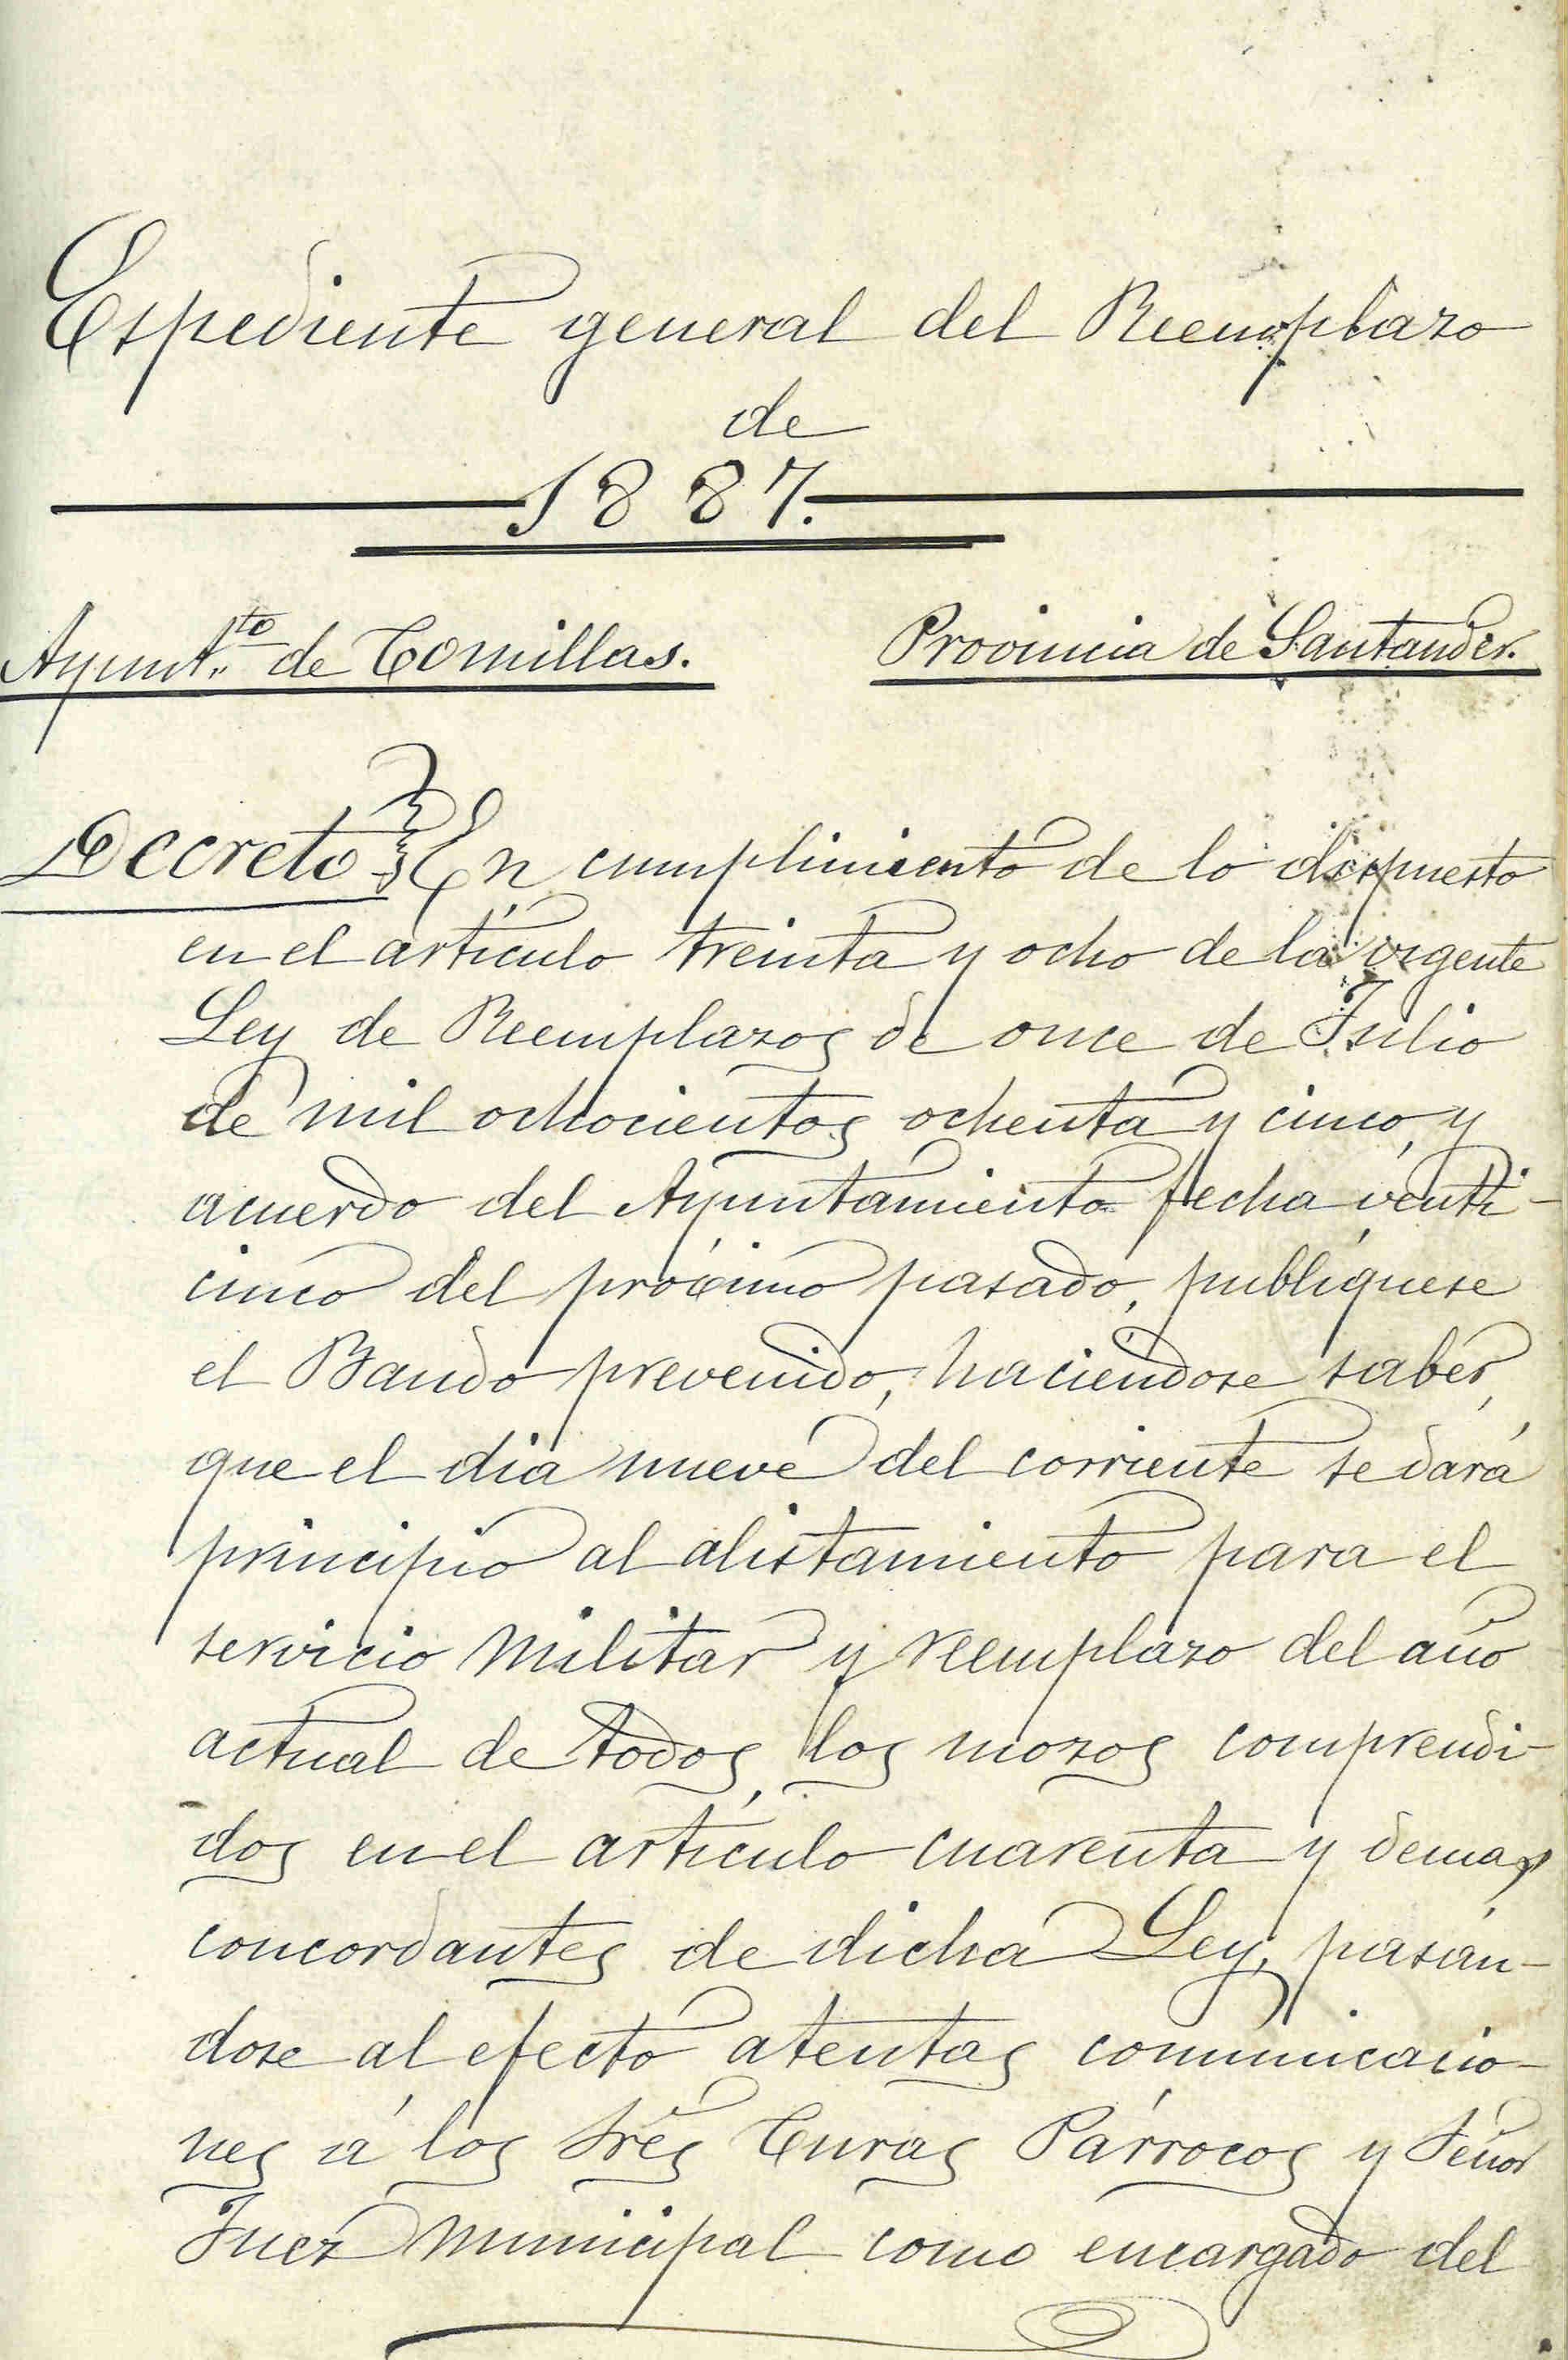 Espediente general del Reemplazo
de
1887.
Ayunt.to de Comillas. Provincia de Santander.
Decreto En cumplimiento de lo dispuesto
en el artículo treinta y ocho de la vigente
Ley de Reemplazos de once de Julio
de mil ochocientos ochenta y cinco, y
acuerdo del Ayuntamiento fecha venti-
cinco del prócsimo pasado, publíquese
el Bando prevenido, haciéndose saber,
que el dia nueve del corriente se dará
principio al alistamiento para el
servicio militar y reemplazo del año
actual de todos los mozos comprendi-
dos en el artículo cuarenta y demas
concordantes de dicha Ley, pasán-
dose al efecto atentas comunicacio-
nes á los Sres Curas Párrocos y Señor
Juez municipal como encargado del